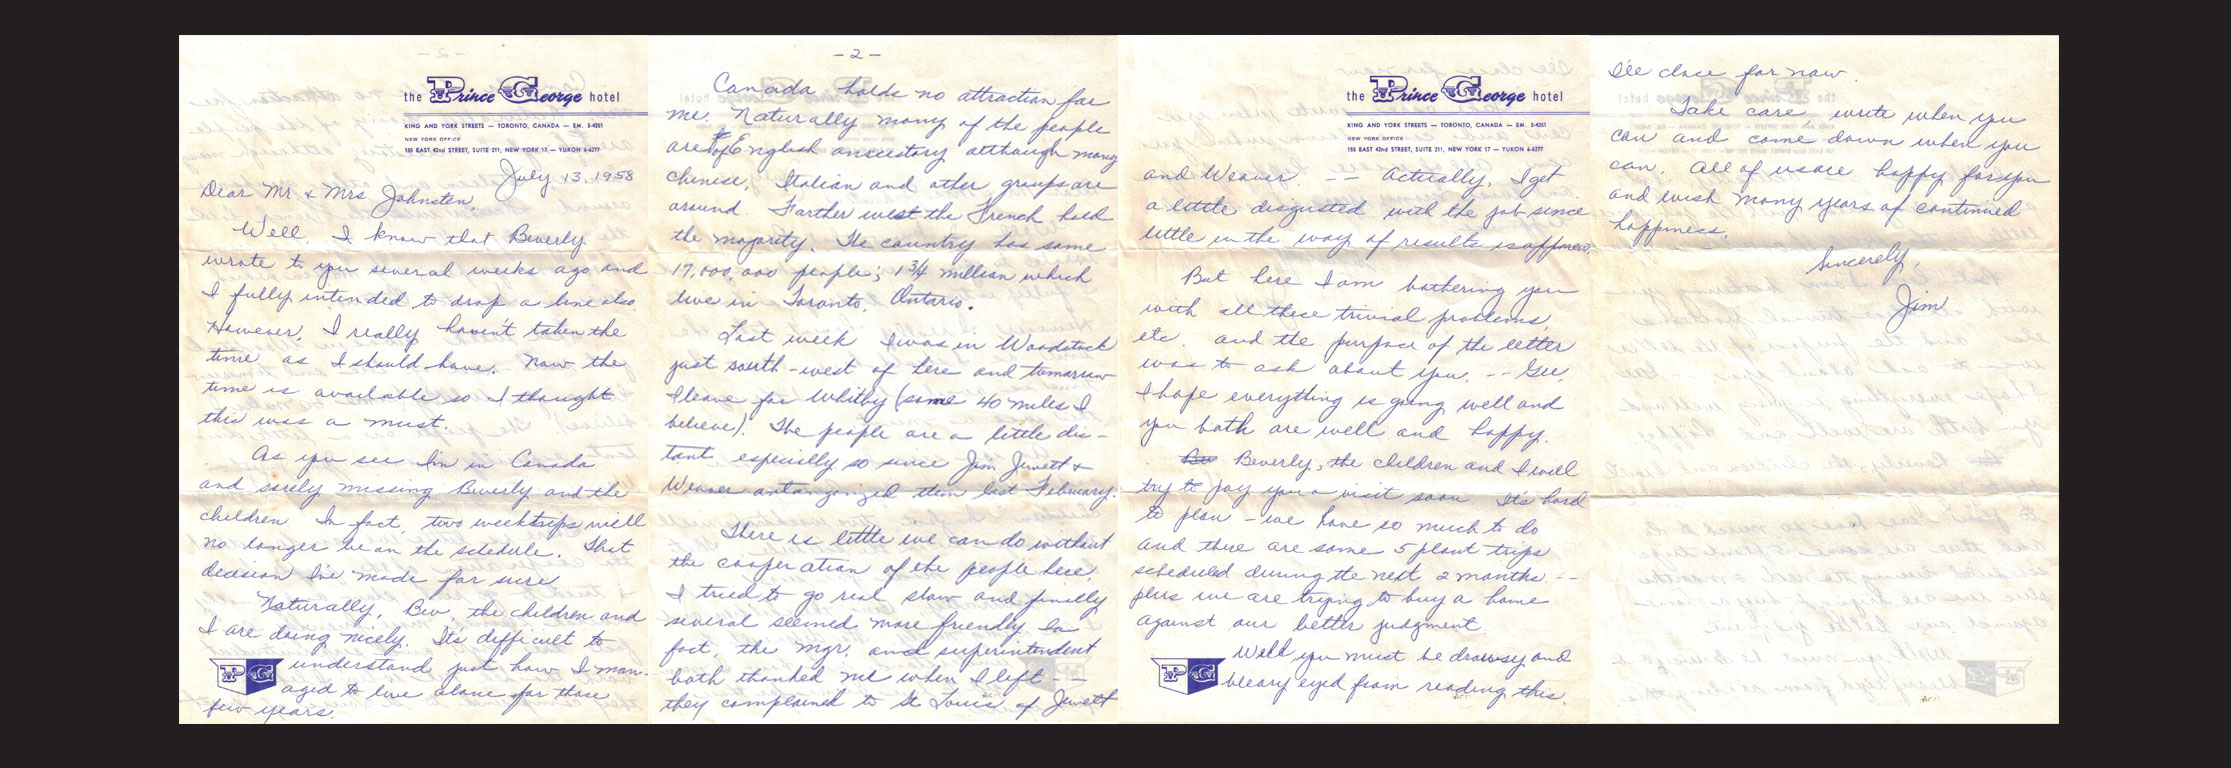 the Prince George hotel
KING AND YORK STREETS — TORONTO, CANADA — EM. 3-4351
NEW YORK OFFICE
155 EAST 42nd STREET, SUITE 211, NEW YORK 17 — YUKON 6-6277
July 13, 1958
Dear Mr. & Mrs Johnsten,
Well, I know that Beverly
wrote to you several weeks ago and
I fully intended to drop a line also.
However, I really haven't taken the
time as I should have. Now the
time is available so I thought
this was a must.
As you see I'm in Canada
and sorely missing Beverly and the
children. In fact, two week trips will
no longer be on the schedule. That
decision I've made for sure
Naturally, Bev, the children and
I are doing nicely. It's difficult to
understand just how I man-
aged to live alone for those
few years.
PG
-2-
Canada holds no attraction for
me. Naturally many of the people
are of English ancestory although many
Chinese, Italian and other groups are
around. Farther west the French hold
the majority. The country has some
17,000,000 people; 1 3/4 million which
live in Toronto, Ontario.
Last week I was in Woodstock
just south-west of here and tomorrow
I leave for Whitby (some 40 miles I
believe). The people are a little dis-
tant especially so since Jim Jewett &
Weaver antangonzed them last February.
There is little we can do without
the cooperation of the people here.
I tried to go real slow and finally
several seemed more friendly. In
fact, the mgr. and superintendent
both thanked me when I left --
they complained to St Louis of Jewett
the Prince George hotel
KING AND YORK STREETS — TORONTO, CANADA — EM. 3-4351
NEW YORK OFFICE
155 EAST 42nd STREET, SUITE 211, NEW YORK 17 — YUKON 6-6277
and Weaver. -- Actually, I get
a little disgusted with the job since
little in the way of results is apparent.
But here I am bothering you
with all these trivial problems,
etc. and the purpose of the letter
was to ask about you. -- Gee,
I hope everything is going well and
you both are well and happy.
Bev Beverly, the children and I will
try to pay you a visit soon. It's hard
to plan - we have so much to do
and there are some 5 plant trips
scheduled during the next 2 months --
plus we are trying to buy a home
against our better judgment.
Well you must be drowsy and
bleary eyed from reading this.
PG
I'll close for now.
Take care, write when you
can and come down when you
can. All of us are happy for you
and wish many years of continued
happiness.
Sincerely,
Jim